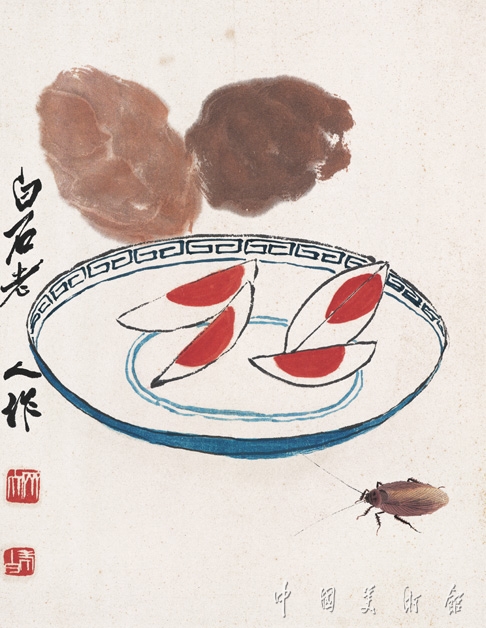 白石老人作
中国美术馆